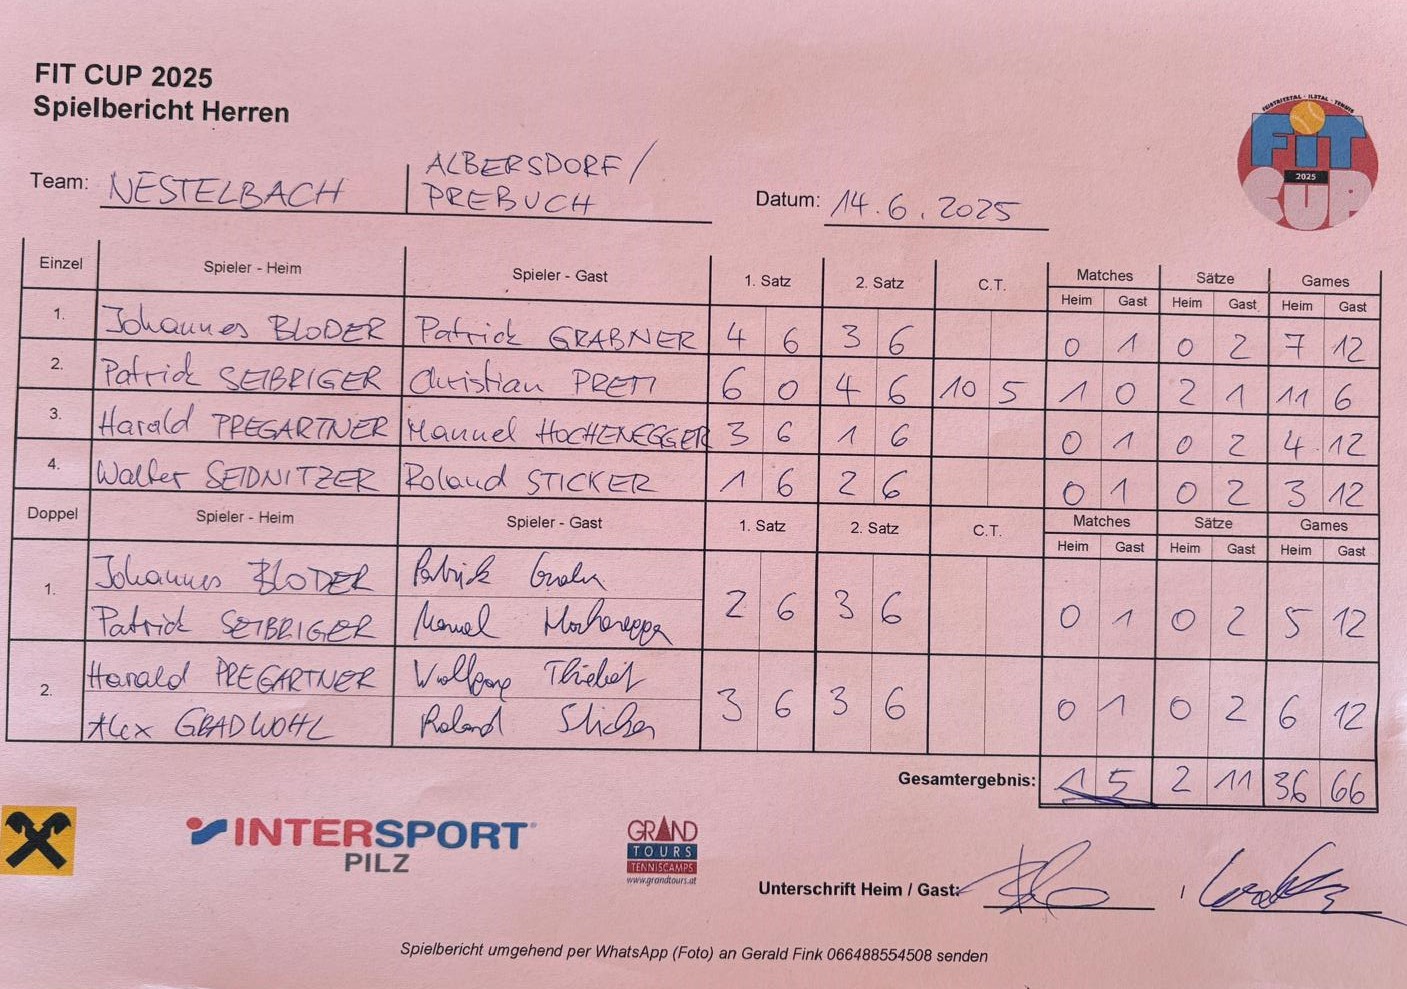 FIT CUP 2025
Spielbericht Herren
FEISTRITZTAL - ILZTAL - TENNIS
FIT
2025
CUP
Team: NESTELBACH ALBERSDORF/
PREBUCH
Datum: 14.6.2025
Einzel Spieler - Heim Spieler - Gast 1. Satz 2. Satz C.T. Matches Sätze Games
Heim Gast Heim Gast Heim Gast
1. Johannes BLODER Patrick GRABNER 4 6 3 6 0 1 0 2 7 12
2. Patrick SEIBRIGER Christian 6 0 4 6 10 5 1 0 2 1 11 6
3. Harald PREGARTNER Manuel HOCHENEGGER 3 6 1 6 0 1 0 2 4 12
4. Walter SEIDNITZER Roland STICKER 1 6 2 6 0 1 0 2 3 12
Doppel Spieler - Heim Spieler - Gast 1. Satz 2. Satz C.T. Matches Sätze Games
Heim Gast Heim Gast Heim Gast
1. Johannes BLODER Patrick
Patrick SEIBRIGER Manuel 2 6 3 6 0 1 0 2 5 12
2. Harald PREGARTNER Wolfgang
Alex GRADWOHL Roland Sticker 3 6 3 6 0 1 0 2 6 12
Gesamtergebnis: 1 5 2 11 36 66
INTERSPORT
PILZ
GRAND
TOURS
TENNISCAMPS
www.grandtours.at
Unterschrift Heim / Gast: ,
Spielbericht umgehend per WhatsApp (Foto) an Gerald Fink 066488554508 senden